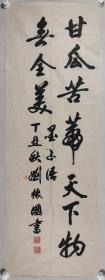 甘瓜苦蒂天下物
無全美
墨子語
丁丑秋劉振國書